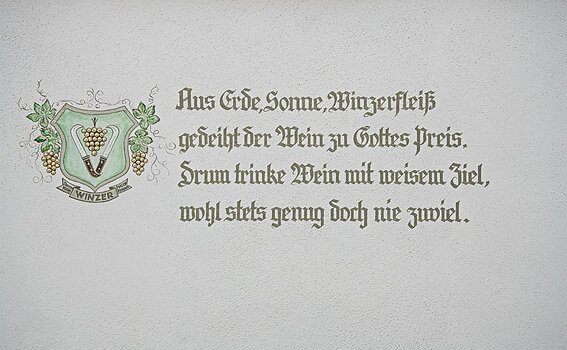 Aus Erde, Sonne, Winzerfleiß
gedeiht der Wein zu Gottes Preis.
Drum trinke Wein mit weisem Ziel,
wohl stets genug doch nie zuviel.
WINZER